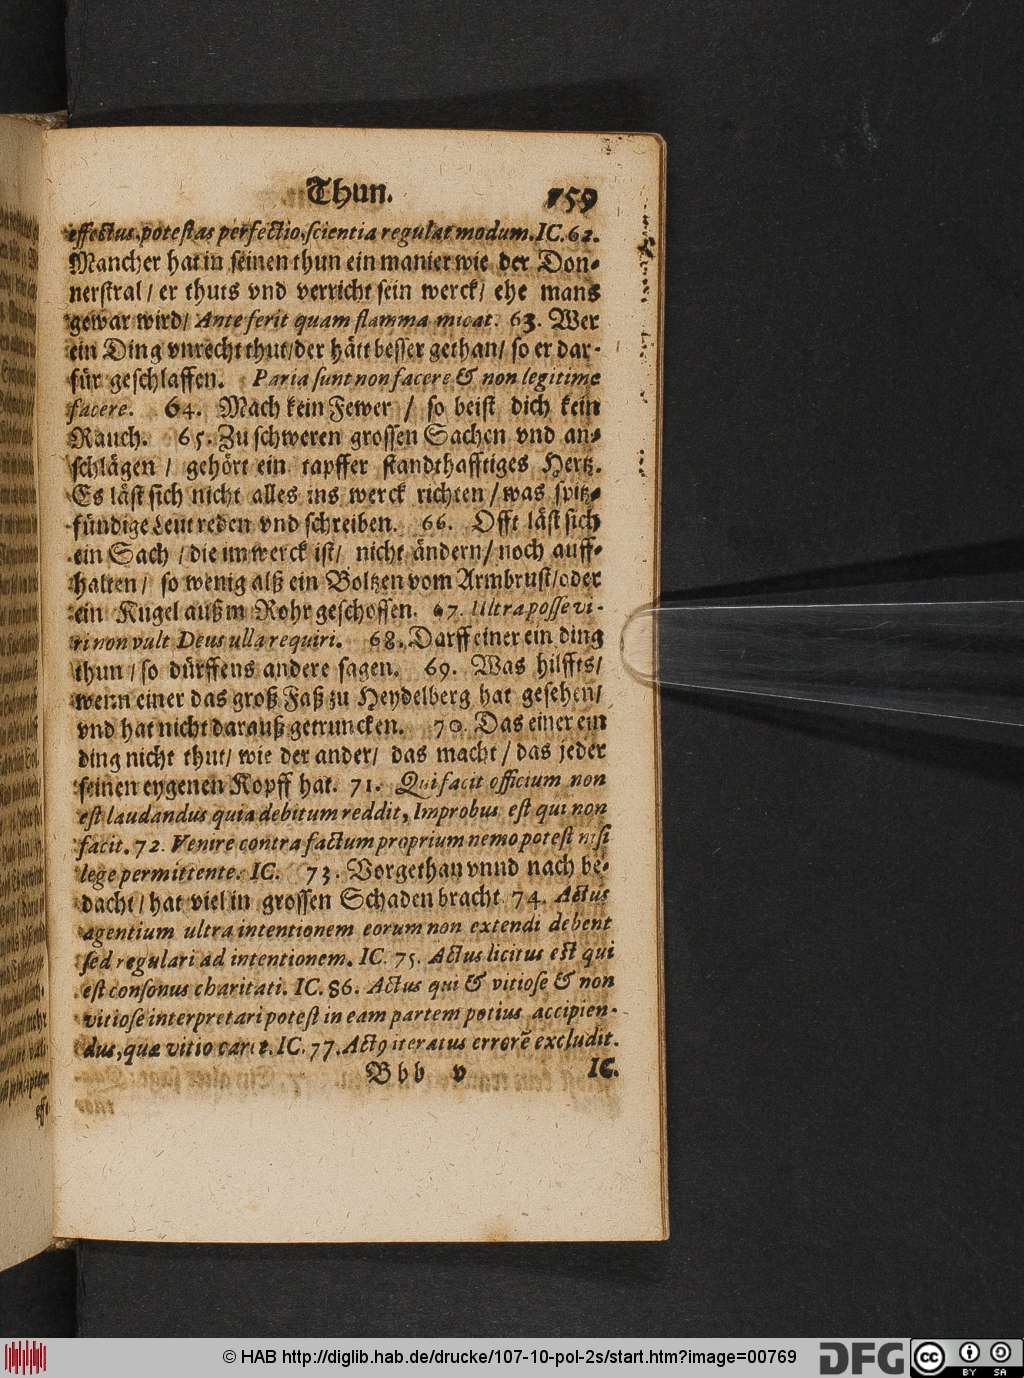 Thun. 759
effectus, potestas perfectio, scientia regulat modum. IC. 62.
Mancher hat in seinen thun ein manier wie der Don-
nerstral / er thuts vnd verricht sein werck / ehe mans
gewar wird / Ante ferit quam flamma micat. 63. Wer
ein Ding vnrecht thut / der hätt besser gethan / so er dar-
für geschlaffen. Paria sunt non facere & non legitime
facere. 64. Mach kein Fewer / so beist dich kein
Rauch. 65. Zu schweren grossen Sachen vnd an-
schlägen / gehört ein tapffer standthafftiges Hertz.
Es läst sich nicht alles ins werck richten / was spitz-
fündige Leut reden vnd schreiben. 66. Offt läst sich
ein Sach / die im werck ist / nicht ändern / noch auff-
halten / so wenig alß ein Boltzen vom Armbrust / oder
ein Kugel auß m Rohr geschossen. 67. Ultra posse vi-
ri non vult Deus ulla requiri. 68. Darff einer ein ding
thun / so dürffens andere sagen. 69. Was hilffts /
wenn einer das groß Faß zu Heydelberg hat gesehen /
vnd hat nicht darauß getruncken. 70. Das einer ein
ding nicht thut / wie der ander / das macht / das jeder
seinen eygenen Kopff hat. 71. Qui facit officium non
est laudandus quia debitum reddit, Improbus est qui non
facit. 72. Venire contra factum proprium nemo potest nisi
lege permittente. IC. 73. Vorgethan vnnd nach be-
dacht / hat viel in grossen Schaden bracht. 74. Actus
agentium ultra intentionem eorum non extendi debent
sed regulari ad intentionem. IC. 75. Actus licitus est qui
est consonus charitati. IC. 86. Actus qui & vitiose & non
vitiose interpretari potest in eam partem potius accipien-
dus, quæ vitio caret. IC. 77. Actꝰ iteratus errorẽ excludit.
Bbb v IC.
© HAB http://diglib.hab.de/drucke/107-10-pol-2s/start.htm?image=00769
DFG
cc BY SA